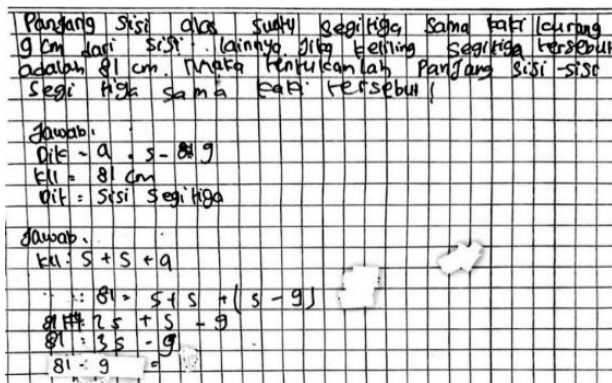 Panjang sisi alas suatu segitiga sama kaki kurang
9 cm dari sisi lainnya. Jika keliling segitiga tersebut
adalah 81 cm. Maka tentukanlah panjang sisi-sisi
segi tiga sama kaki tersebut!
Jawab:
Dik - a = s - 9
Kll = 81 cm
Dit = Sisi Segitiga
Jawab.
Kll : s + s + a
: 81 = s + s + (s - 9)
81 = 2s + s - 9
81 : 3s - 9
81 - 9 =